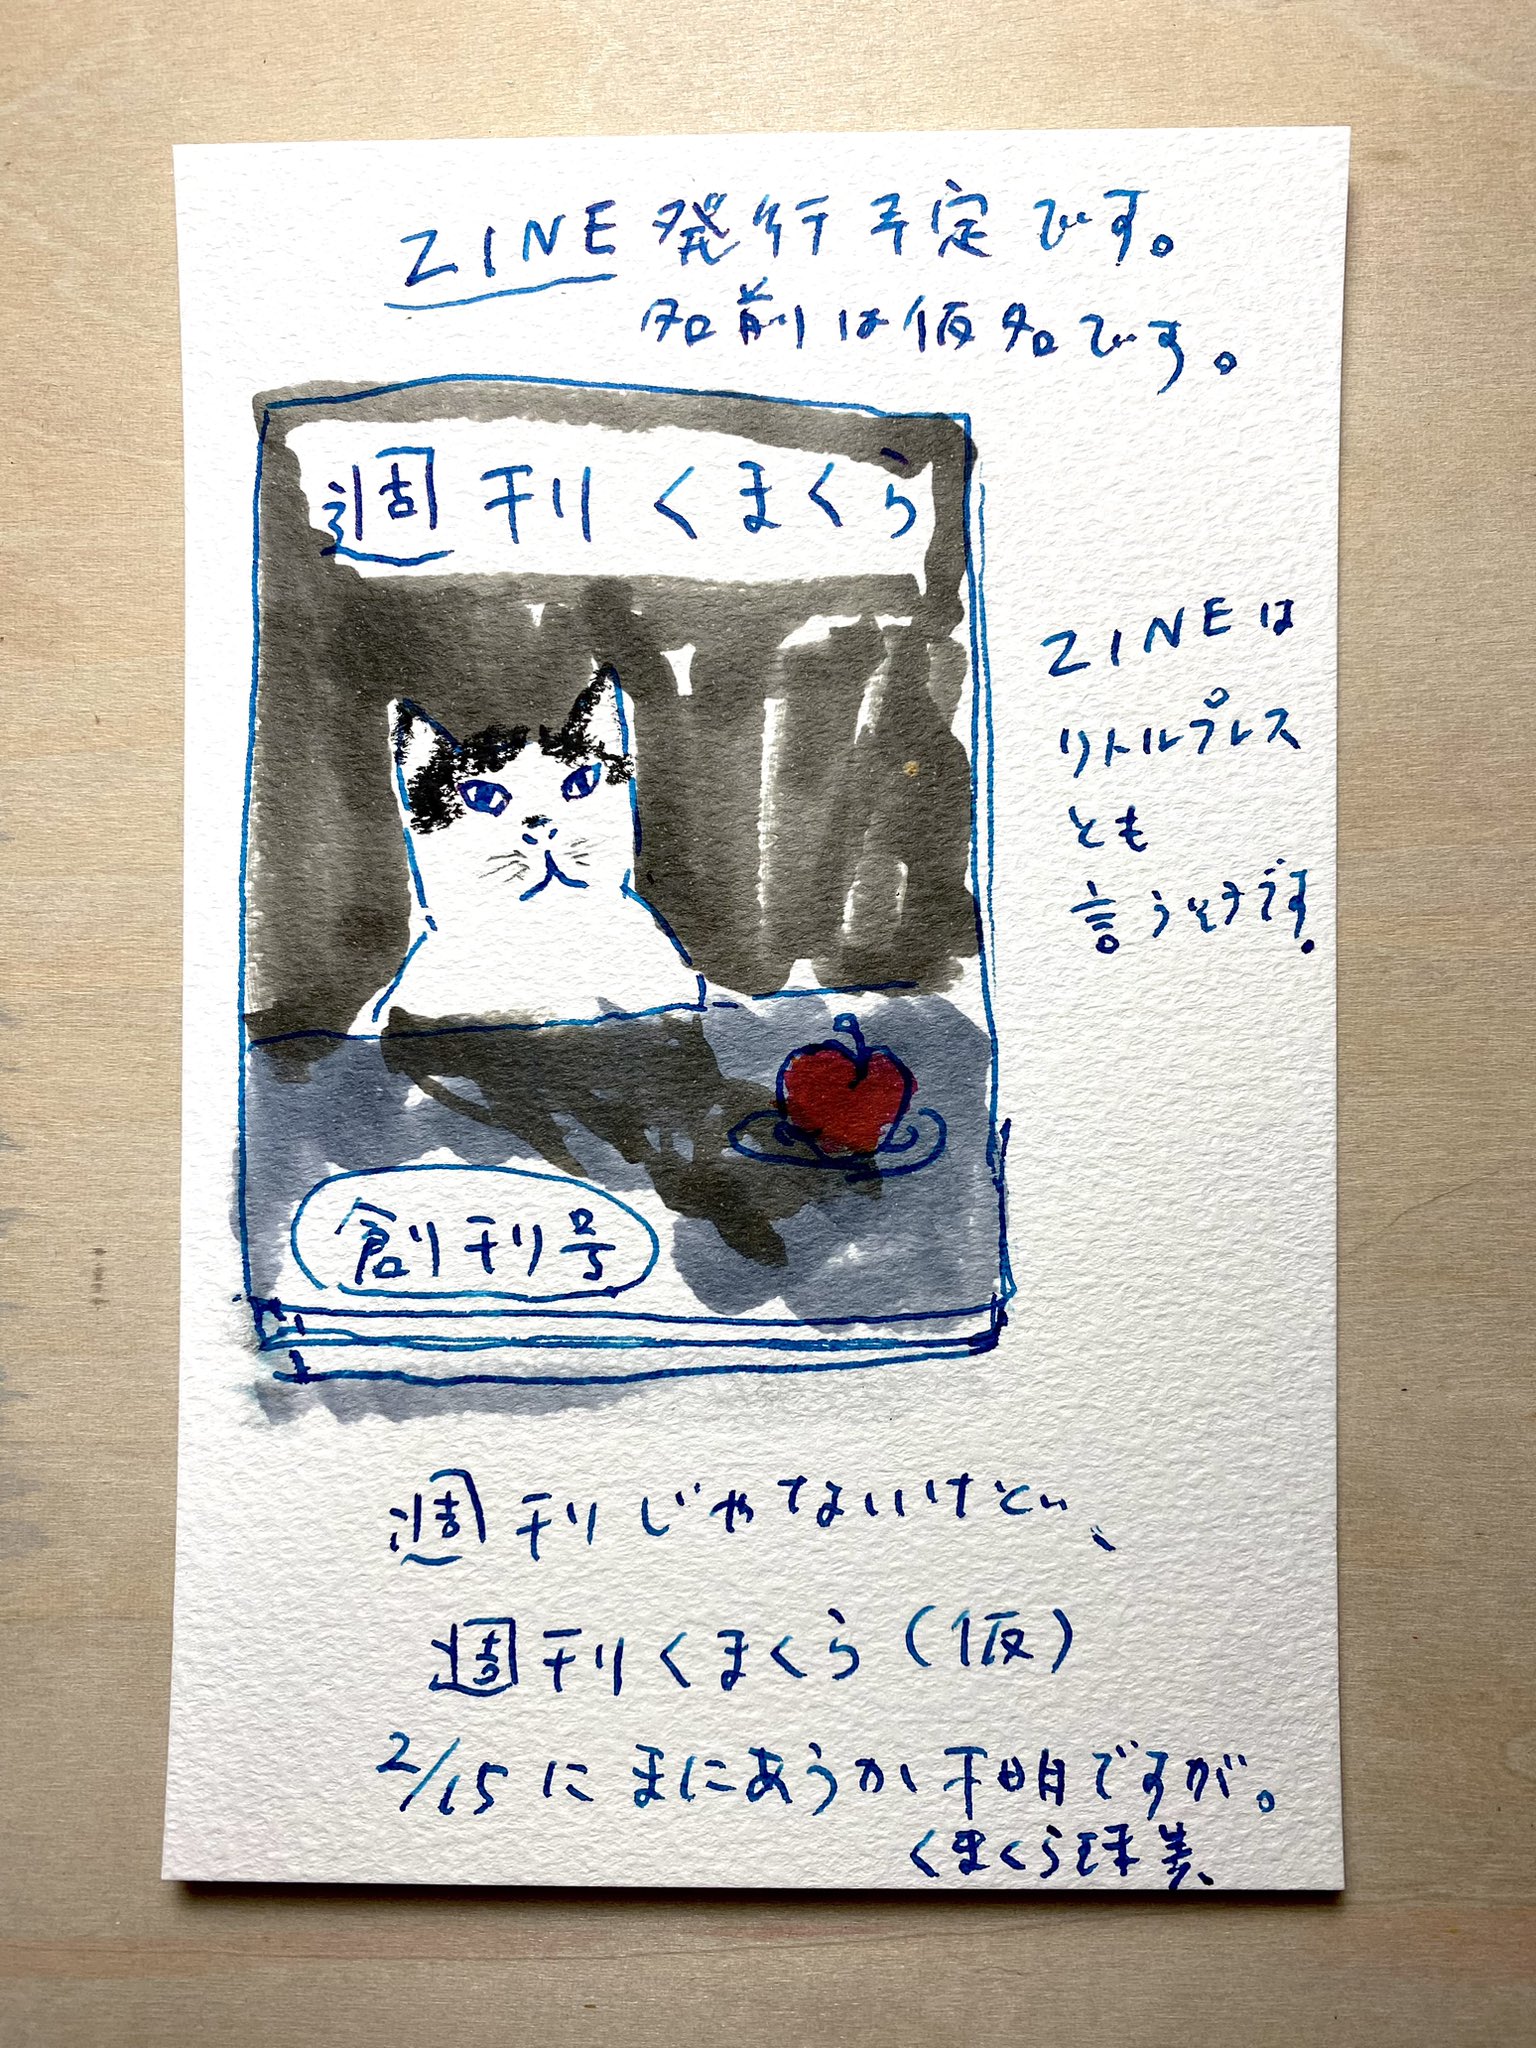 ZINE発行予定です。
名前は仮名です。
週刊くまくら
ZINEは
リトルプレス
とも
言うそうです。
創刊号
週刊じゃないけど、
週刊くまくら(仮)
2/15にまにあうか不明ですが。
くまくら珠美